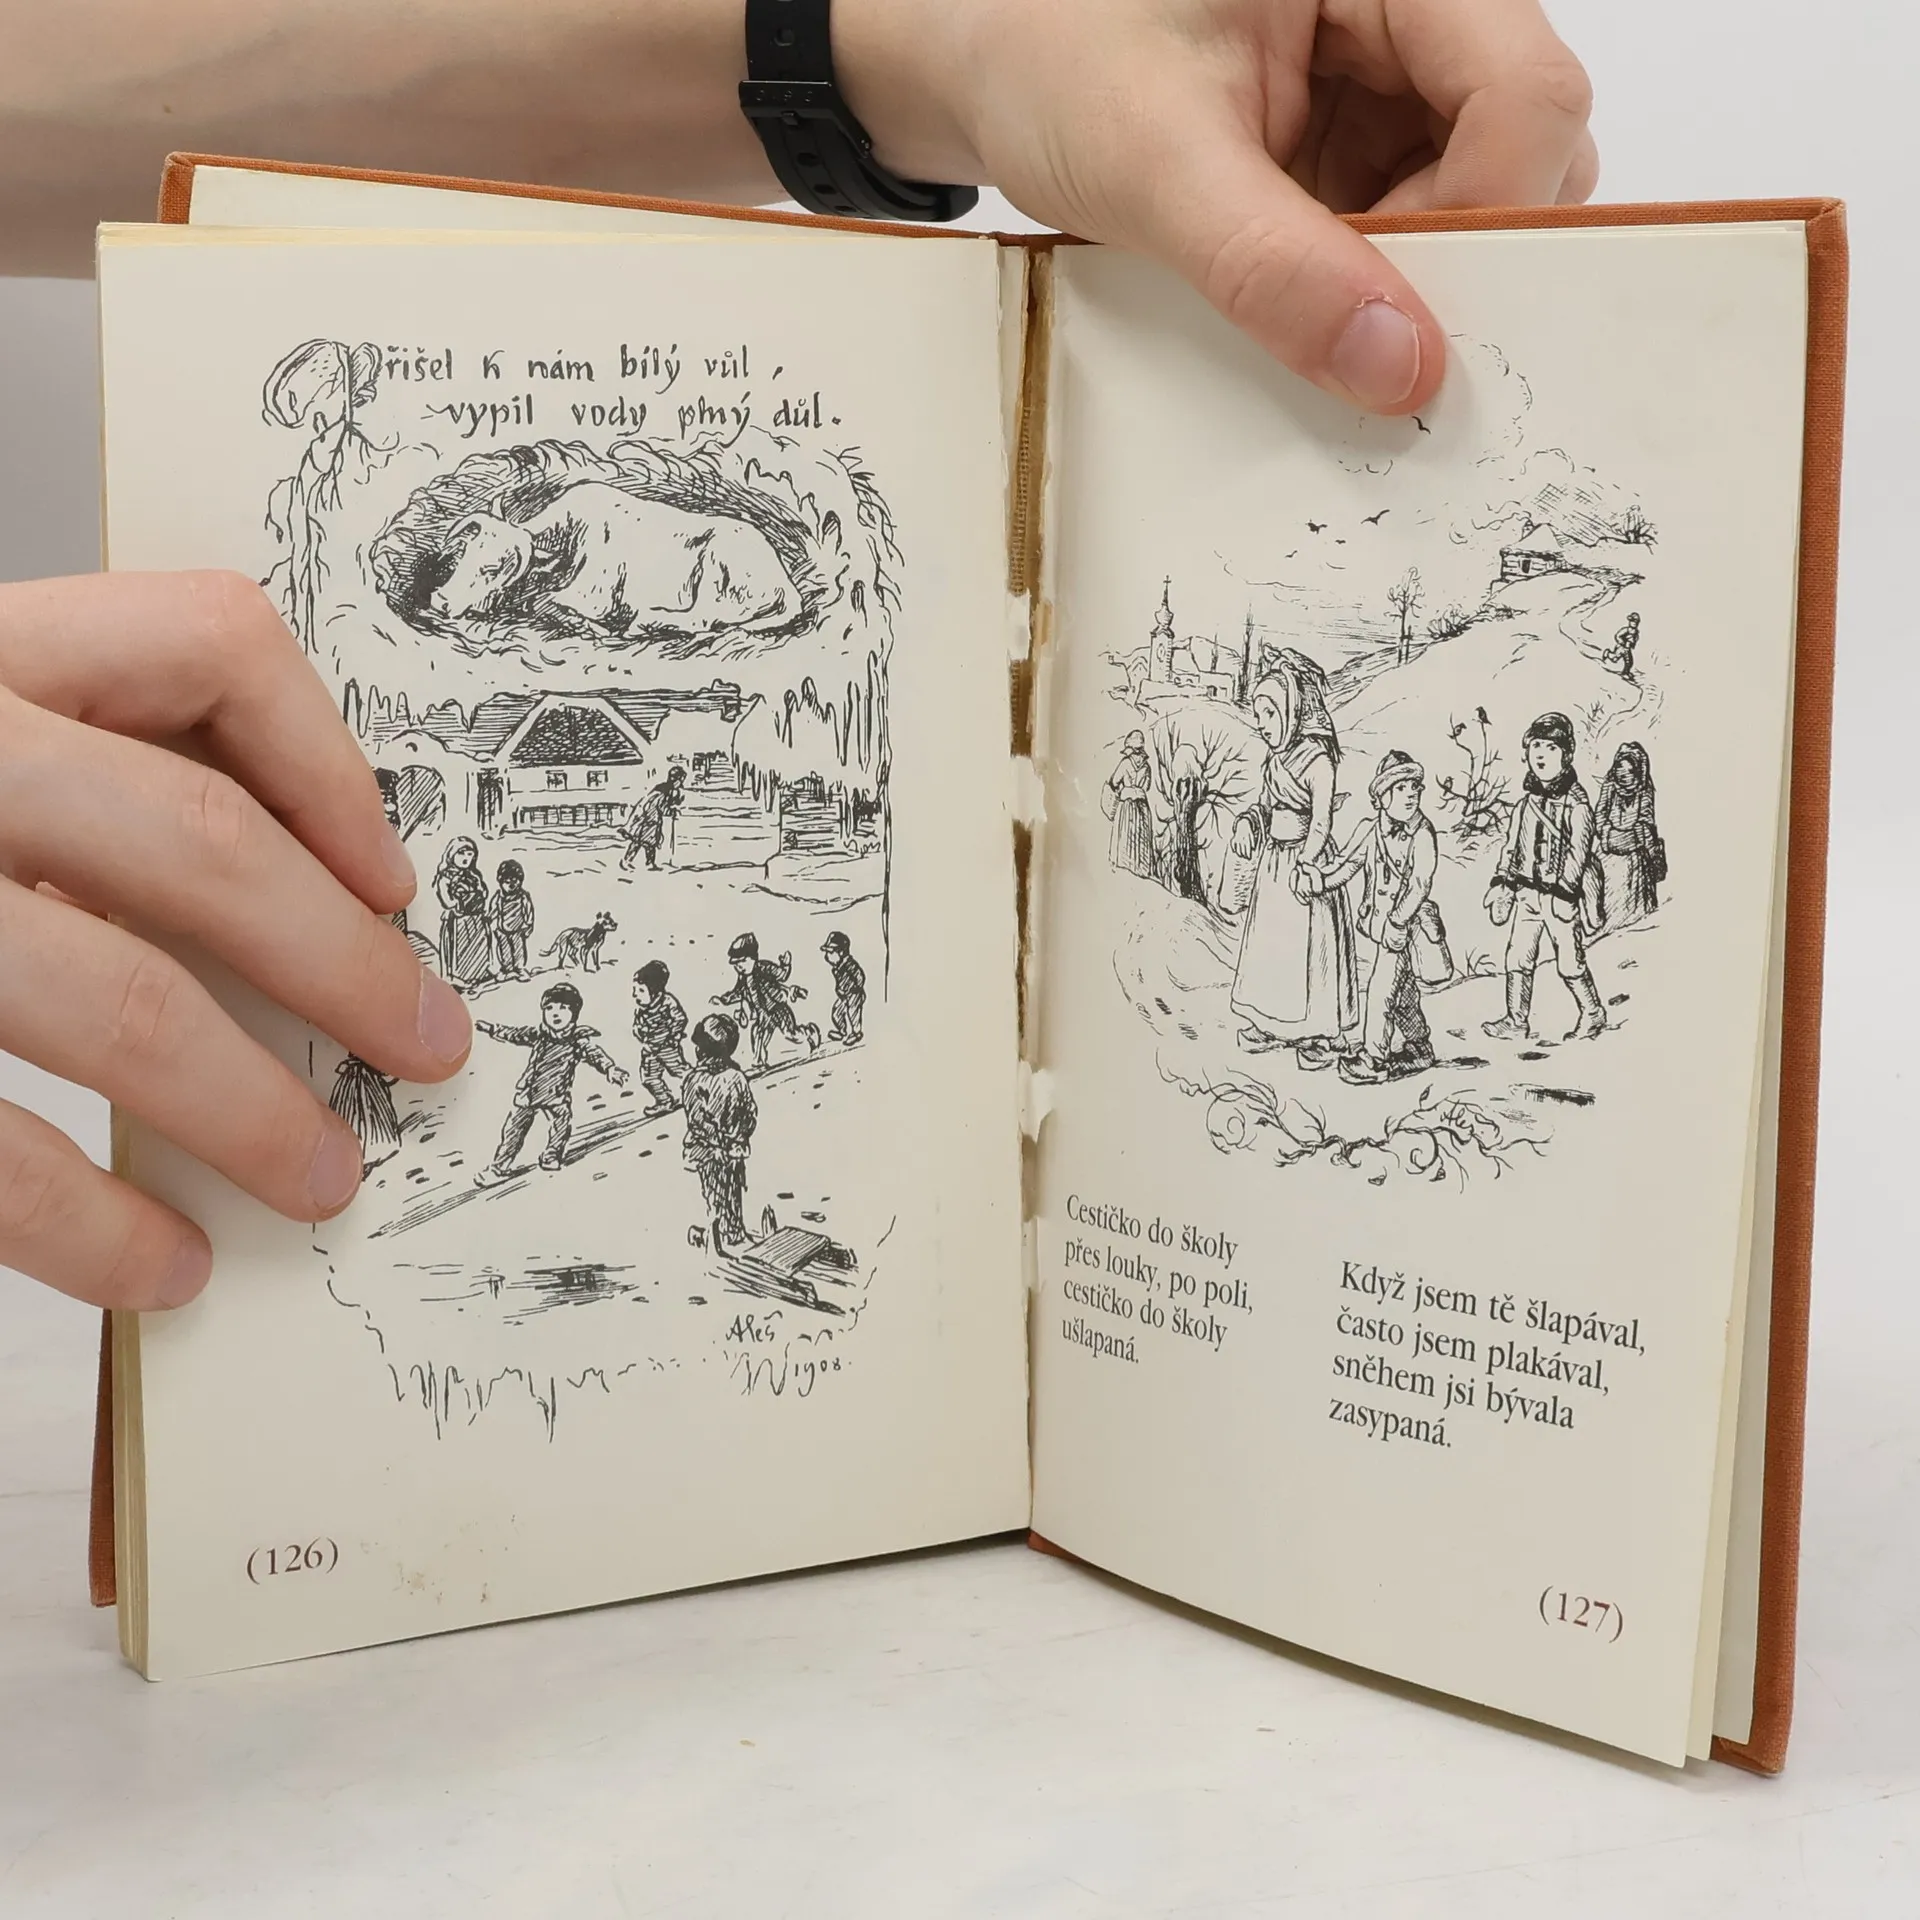 Přišel k nám bílý vůl,
vypil vody plný důl.
Aleš
1908.
(126)
Cestičko do školy
přes louky, po poli,
cestičko do školy
ušlapaná.
Když jsem tě šlapával,
často jsem plakával,
sněhem jsi bývala
zasypaná.
(127)